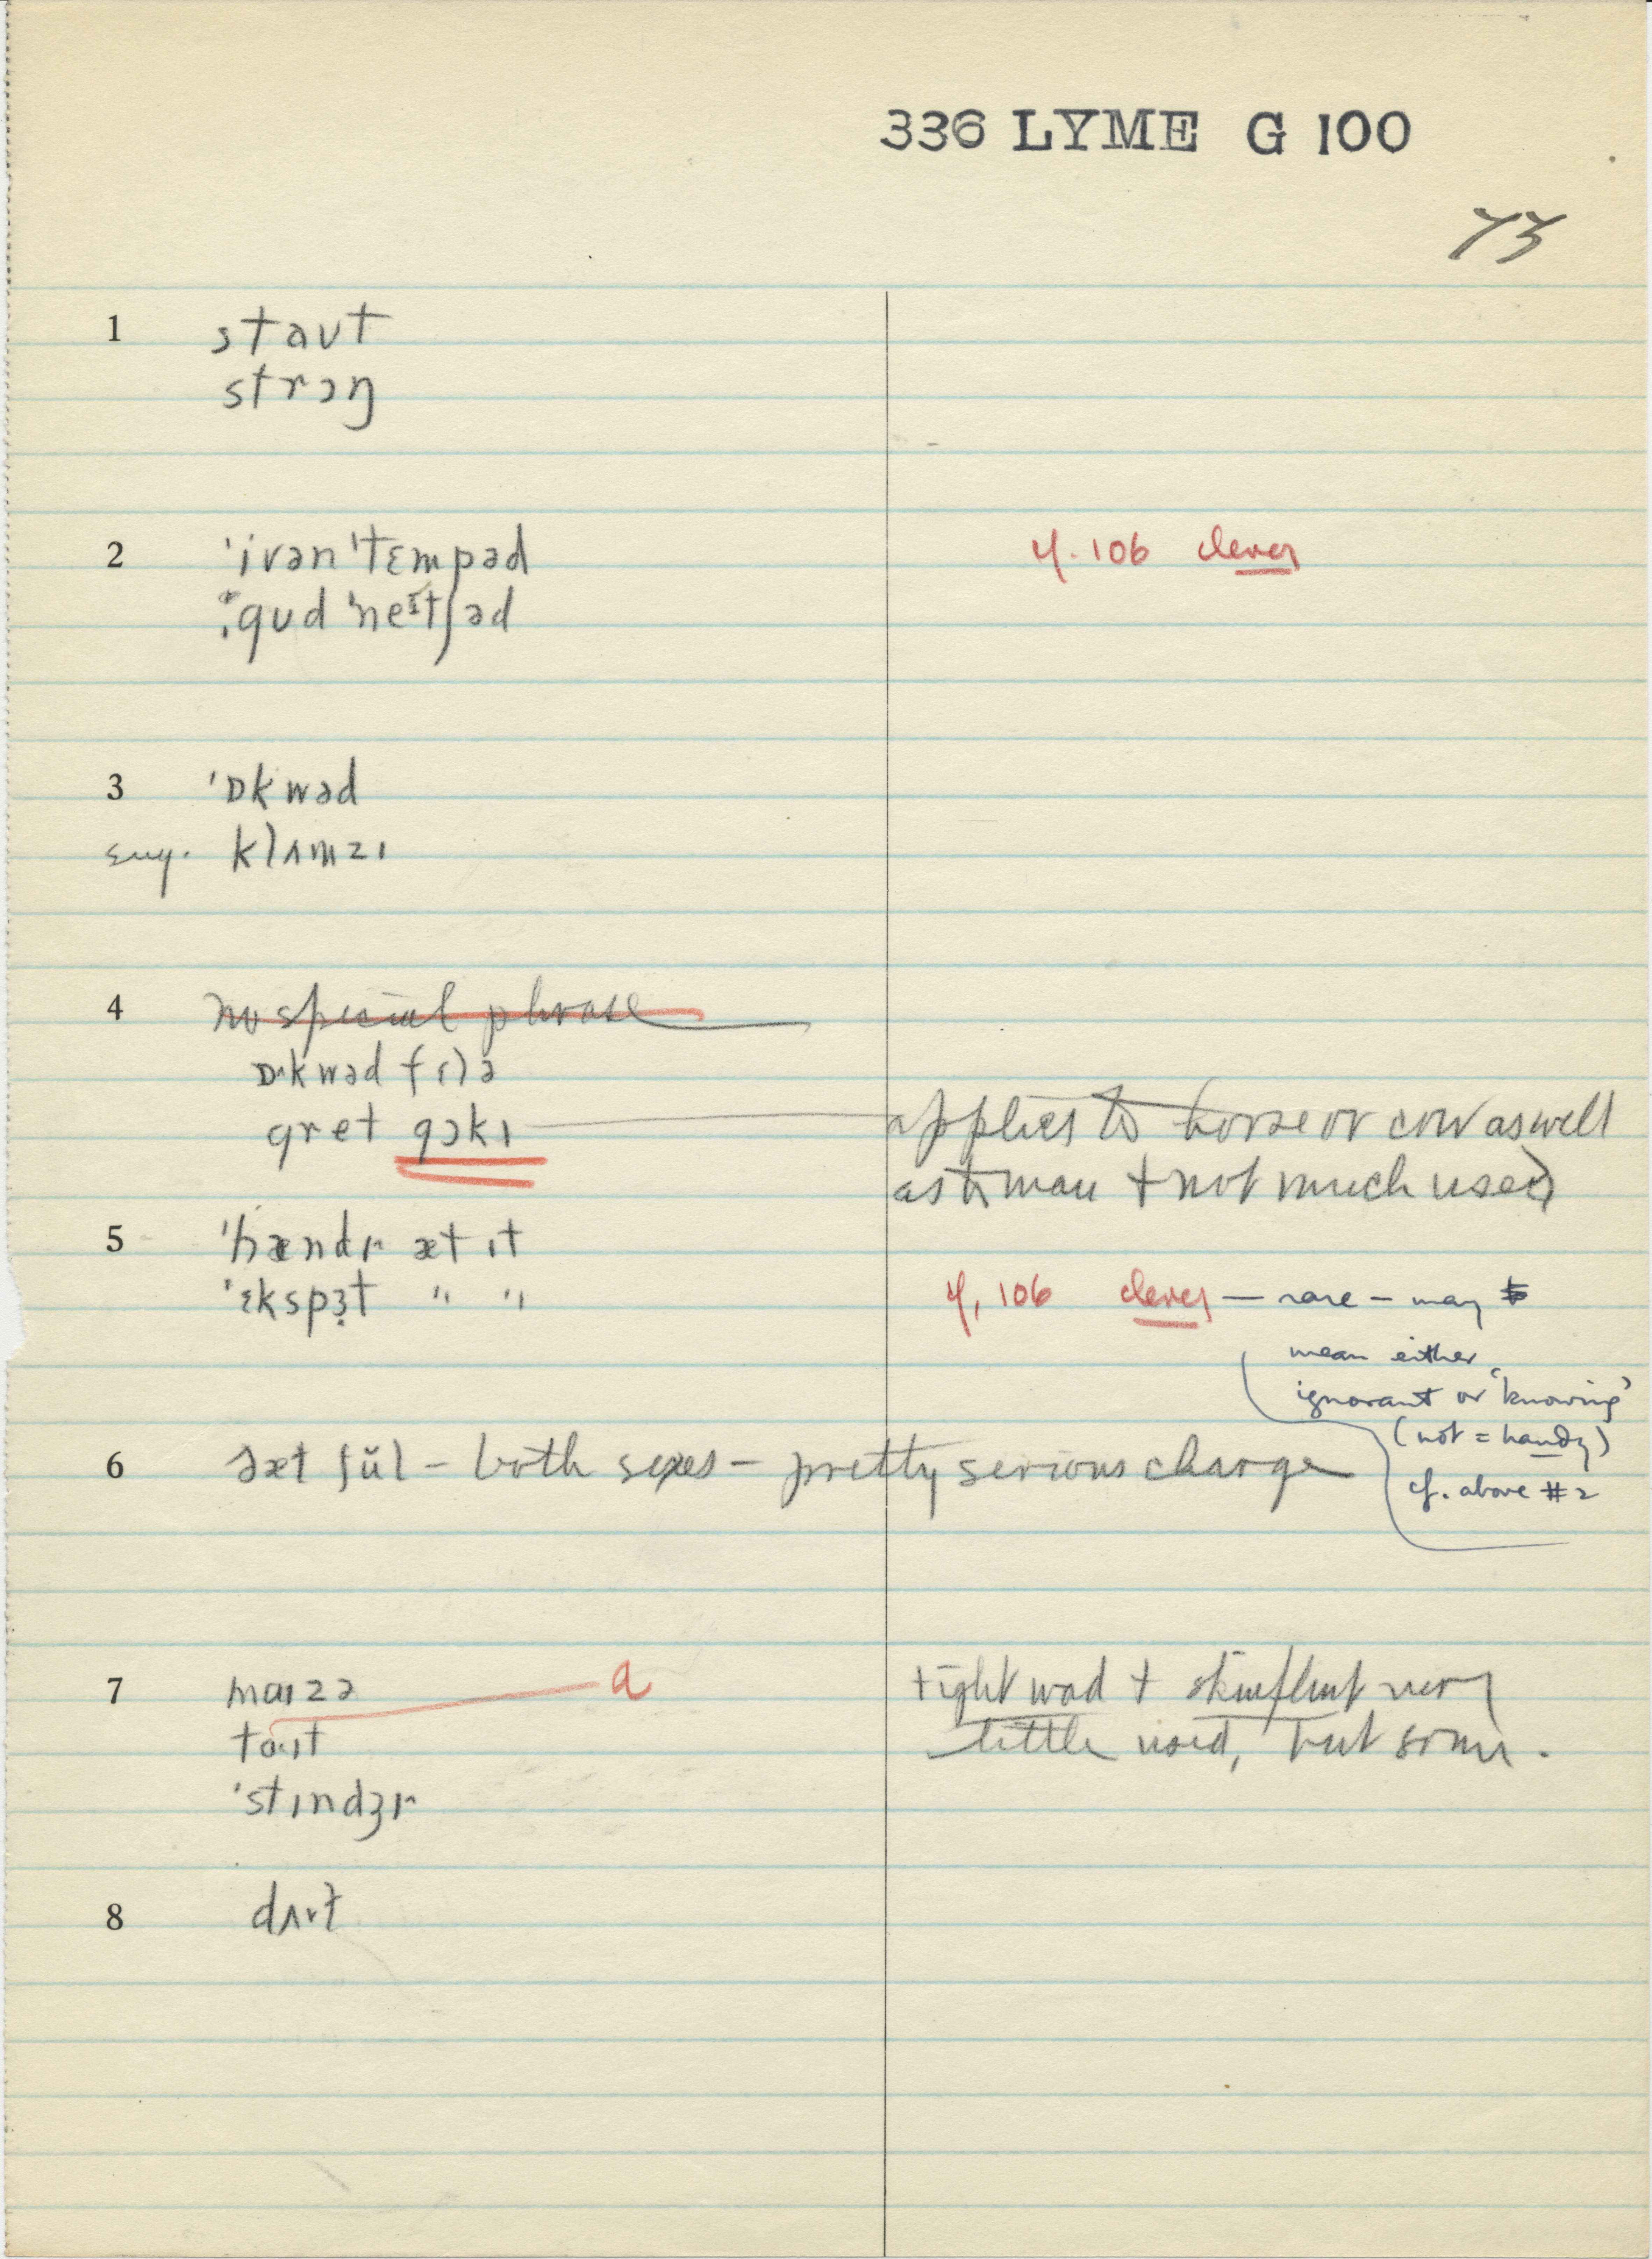 336 LYME G 100
73
1 staʊt
strɔŋ
2 ˈivən ˈtɛmpəd cf. 106 clever
gʊd ˈneɪtʃəd
3 ˈɒkwəd
sug. klʌmzɪ
4 no special phrase
ɒˑkwəd fɛlə
gret gɔkɪ applies to horse or cow as well
as to man + not much used
5 ət ɪt
ˈɛkspɜt " " cf. 106 clever — rare – may
mean either
ignorant or 'knowing'
(not = handy)
cf. above #2
6 – both sexes – pretty serious charge
7 maɪzə a tight wad + skinflint very
taˑɪt little used, but some.
ˈstɪndʒɪ
8